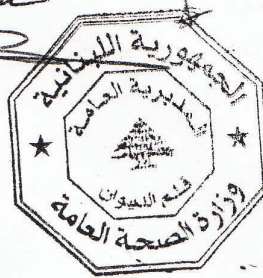 الجمهورية اللبنانية
المديرية العامة
قسم الديوان
وزارة الصحة العامة